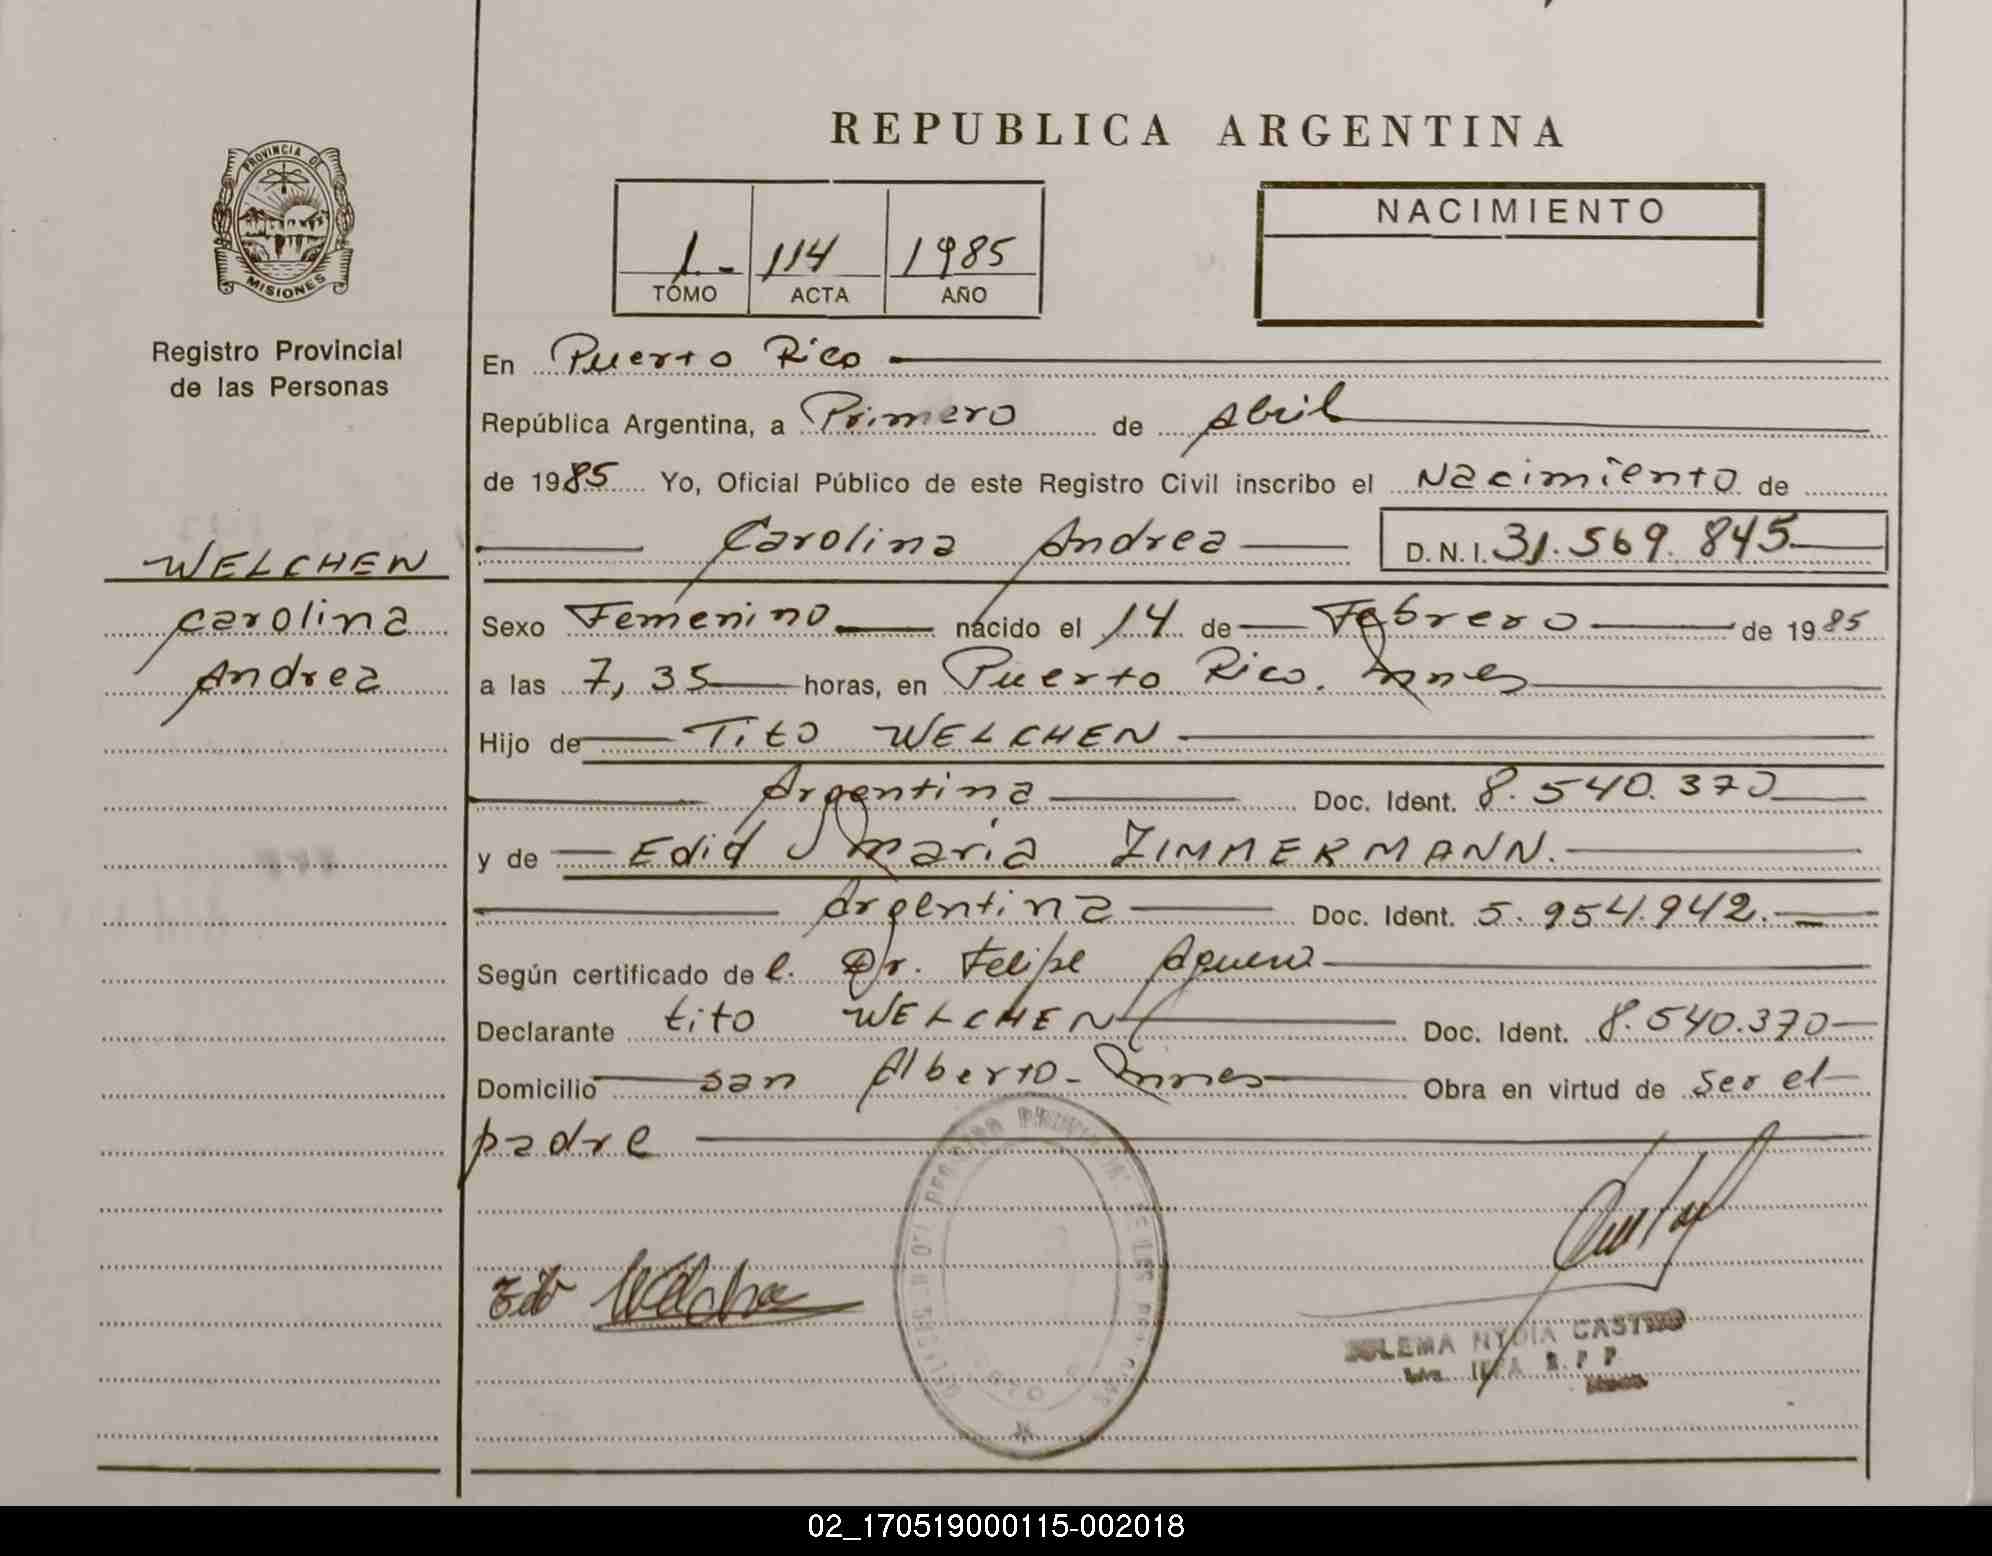 REPUBLICA ARGENTINA
PROVINCIA DE
MISIONES
Registro Provincial
de las Personas
1.- 114 1985
TOMO ACTA AÑO
NACIMIENTO
En Puerto Rico
República Argentina, a Primero de Abril
de 1985 Yo, Oficial Público de este Registro Civil inscribo el Nacimiento de
WELCHEN
Carolina
Andrea
Carolina Andrea D.N.I. 31.569.845
Sexo Femenino nacido el 14 de Febrero de 1985
a las 7,35 horas, en Puerto Rico. Mnes
Hijo de Tito WELCHEN
Argentina Doc. Ident. 8.540.370
y de Edid Maria ZIMMERMANN.
Argentina Doc. Ident. 5.954.942.
Según certificado de l. Dr. Felipe Aguero
Declarante tito WELCHEN Doc. Ident. 8.540.370
Domicilio san Alberto - Mnes Obra en virtud de ser el
padre
Tito Welchen
NYDIA CASTRO
R.P.P
02_170519000115-002018